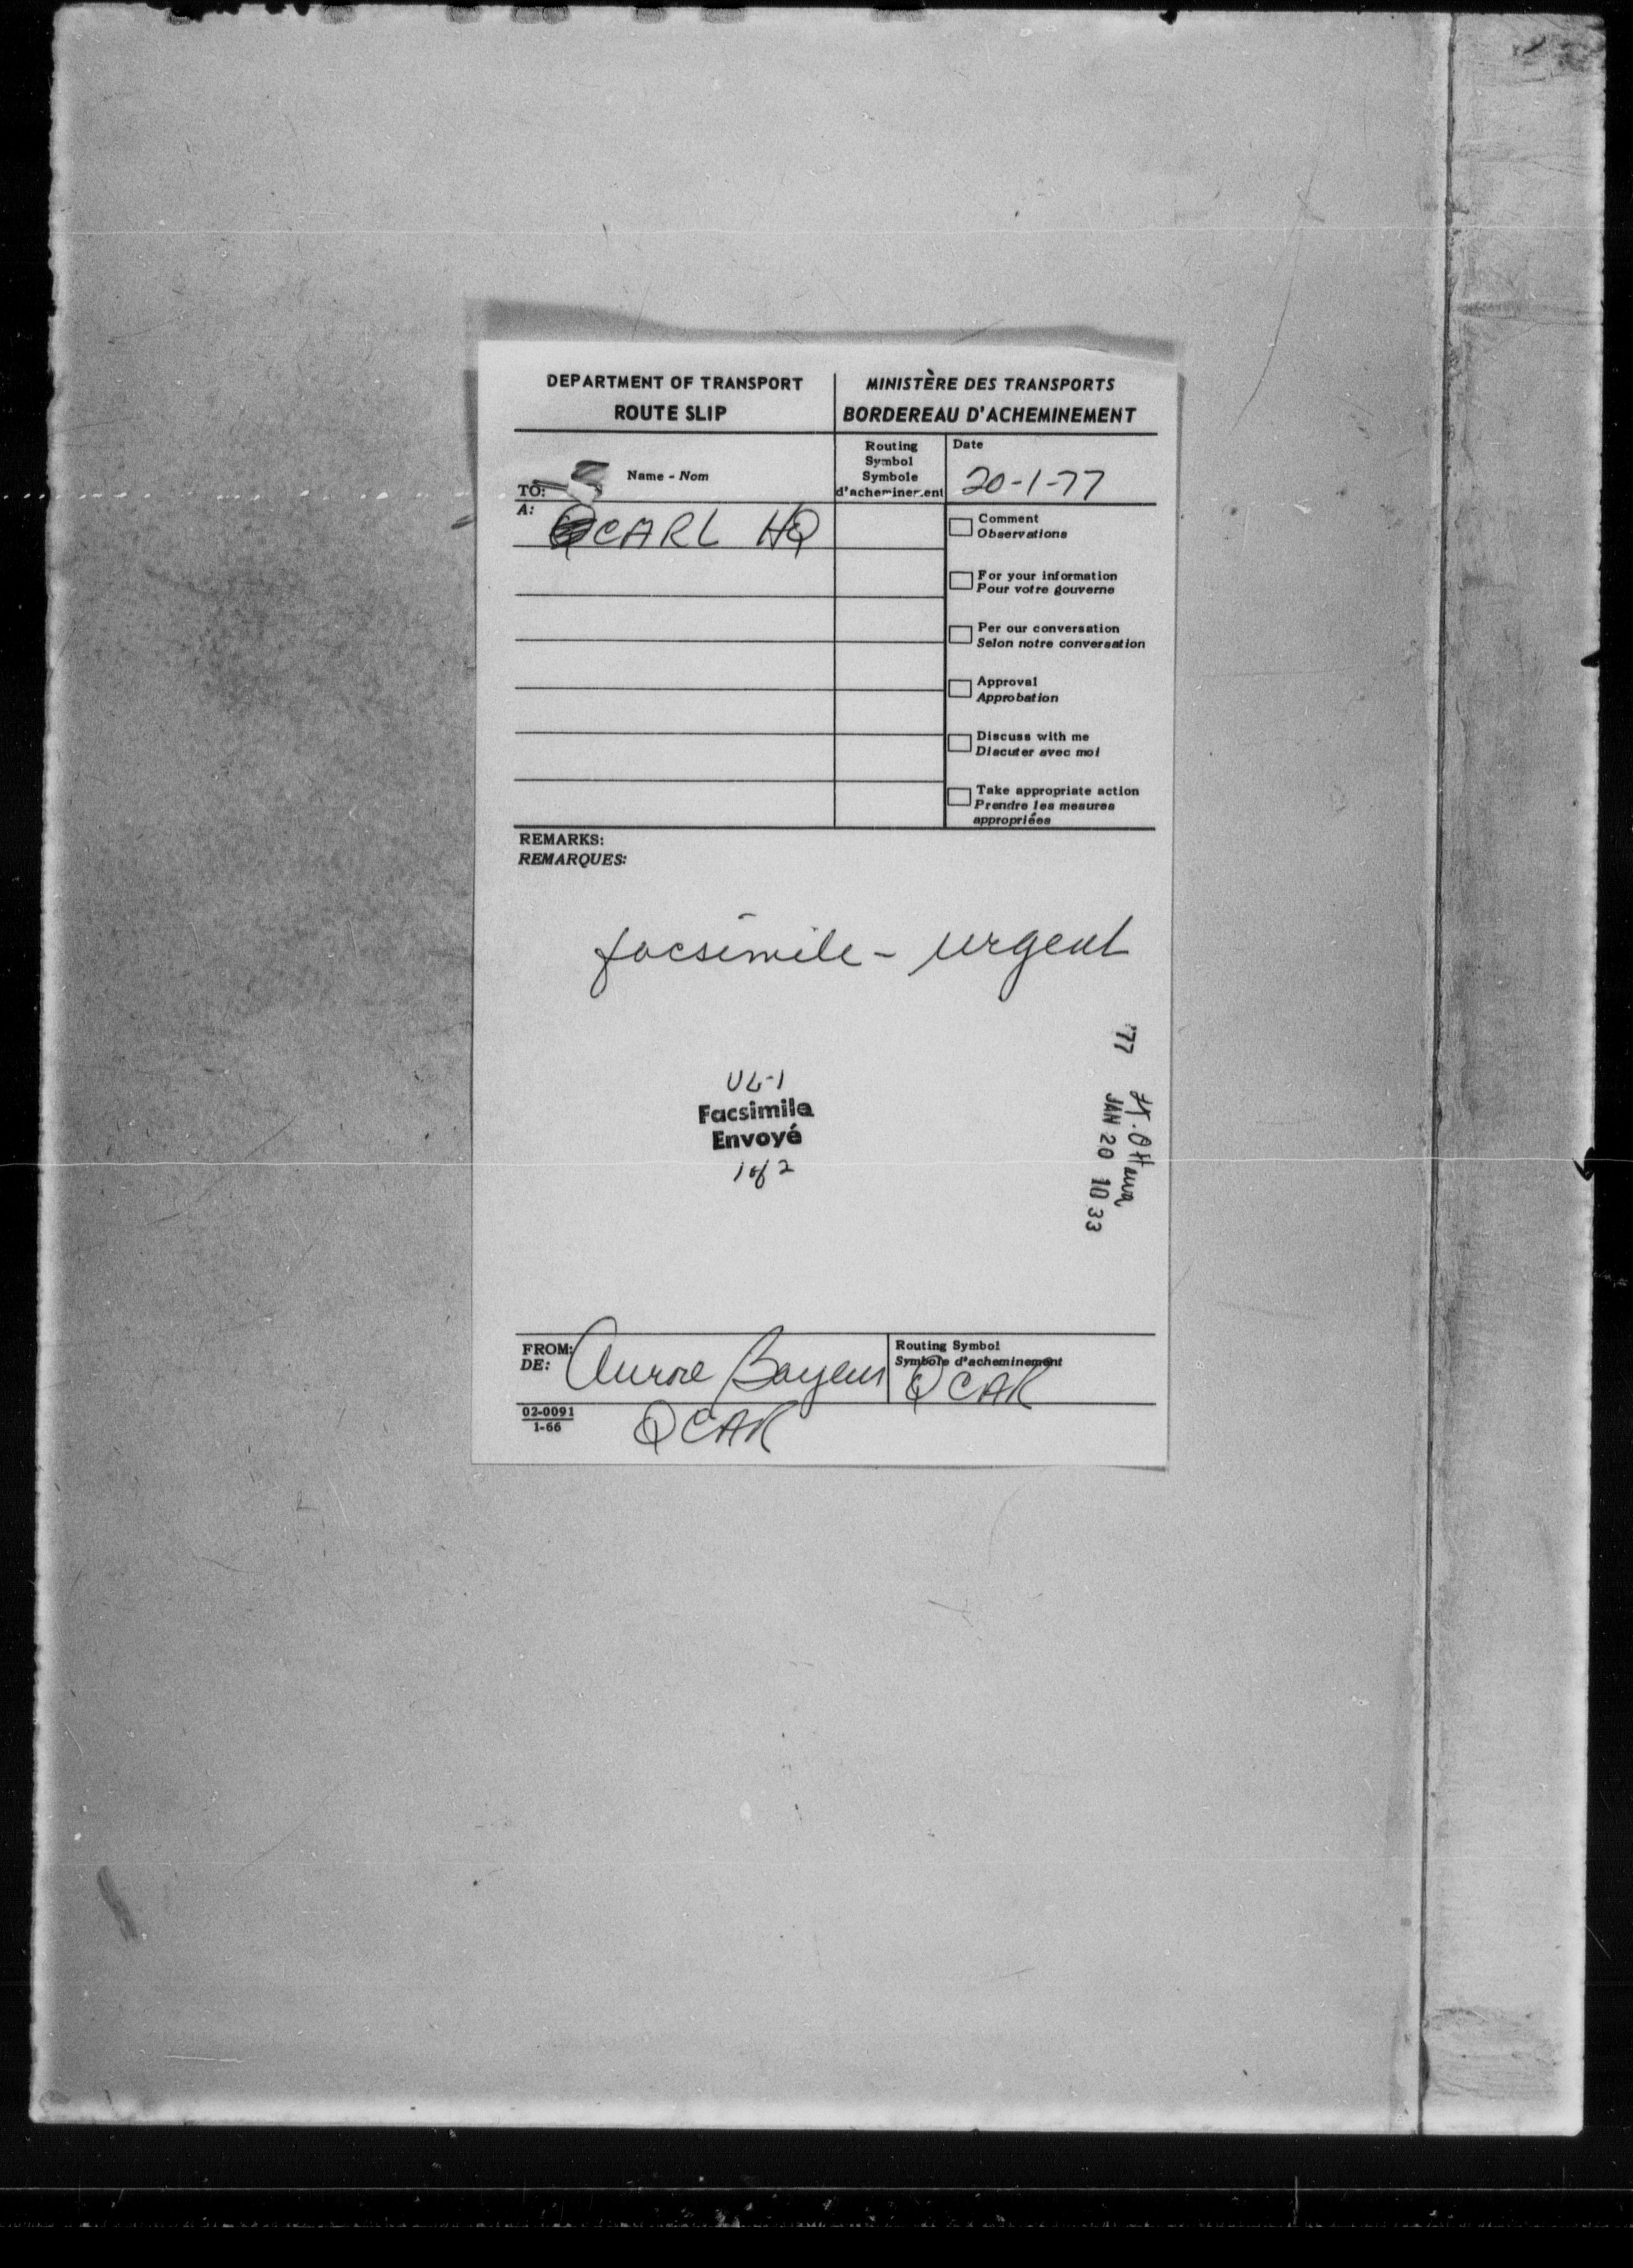 DEPARTMENT OF TRANSPORT
ROUTE SLIP
MINISTÈRE DES TRANSPORTS
BORDEREAU D'ACHEMINEMENT
TO:
A:
Name - Nom
Routing
Symbol
Symbole
d'acheminement
Date
20-1-77
CARL HQ
Comment
Observations
For your information
Pour votre gouverne
Per our conversation
Selon notre conversation
Approval
Approbation
Discuss with me
Discuter avec moi
Take appropriate action
Prendre les mesures
appropriées
REMARKS:
REMARQUES:
facsimile - urgent
UL-1
Facsimile
Envoyé
1 of 2
'77 JAN 20 10 33
Ottawa
FROM:
DE:
Aurore
Routing Symbol
Symbole d'acheminement
QCAR
QCAR
02-0091
1-66